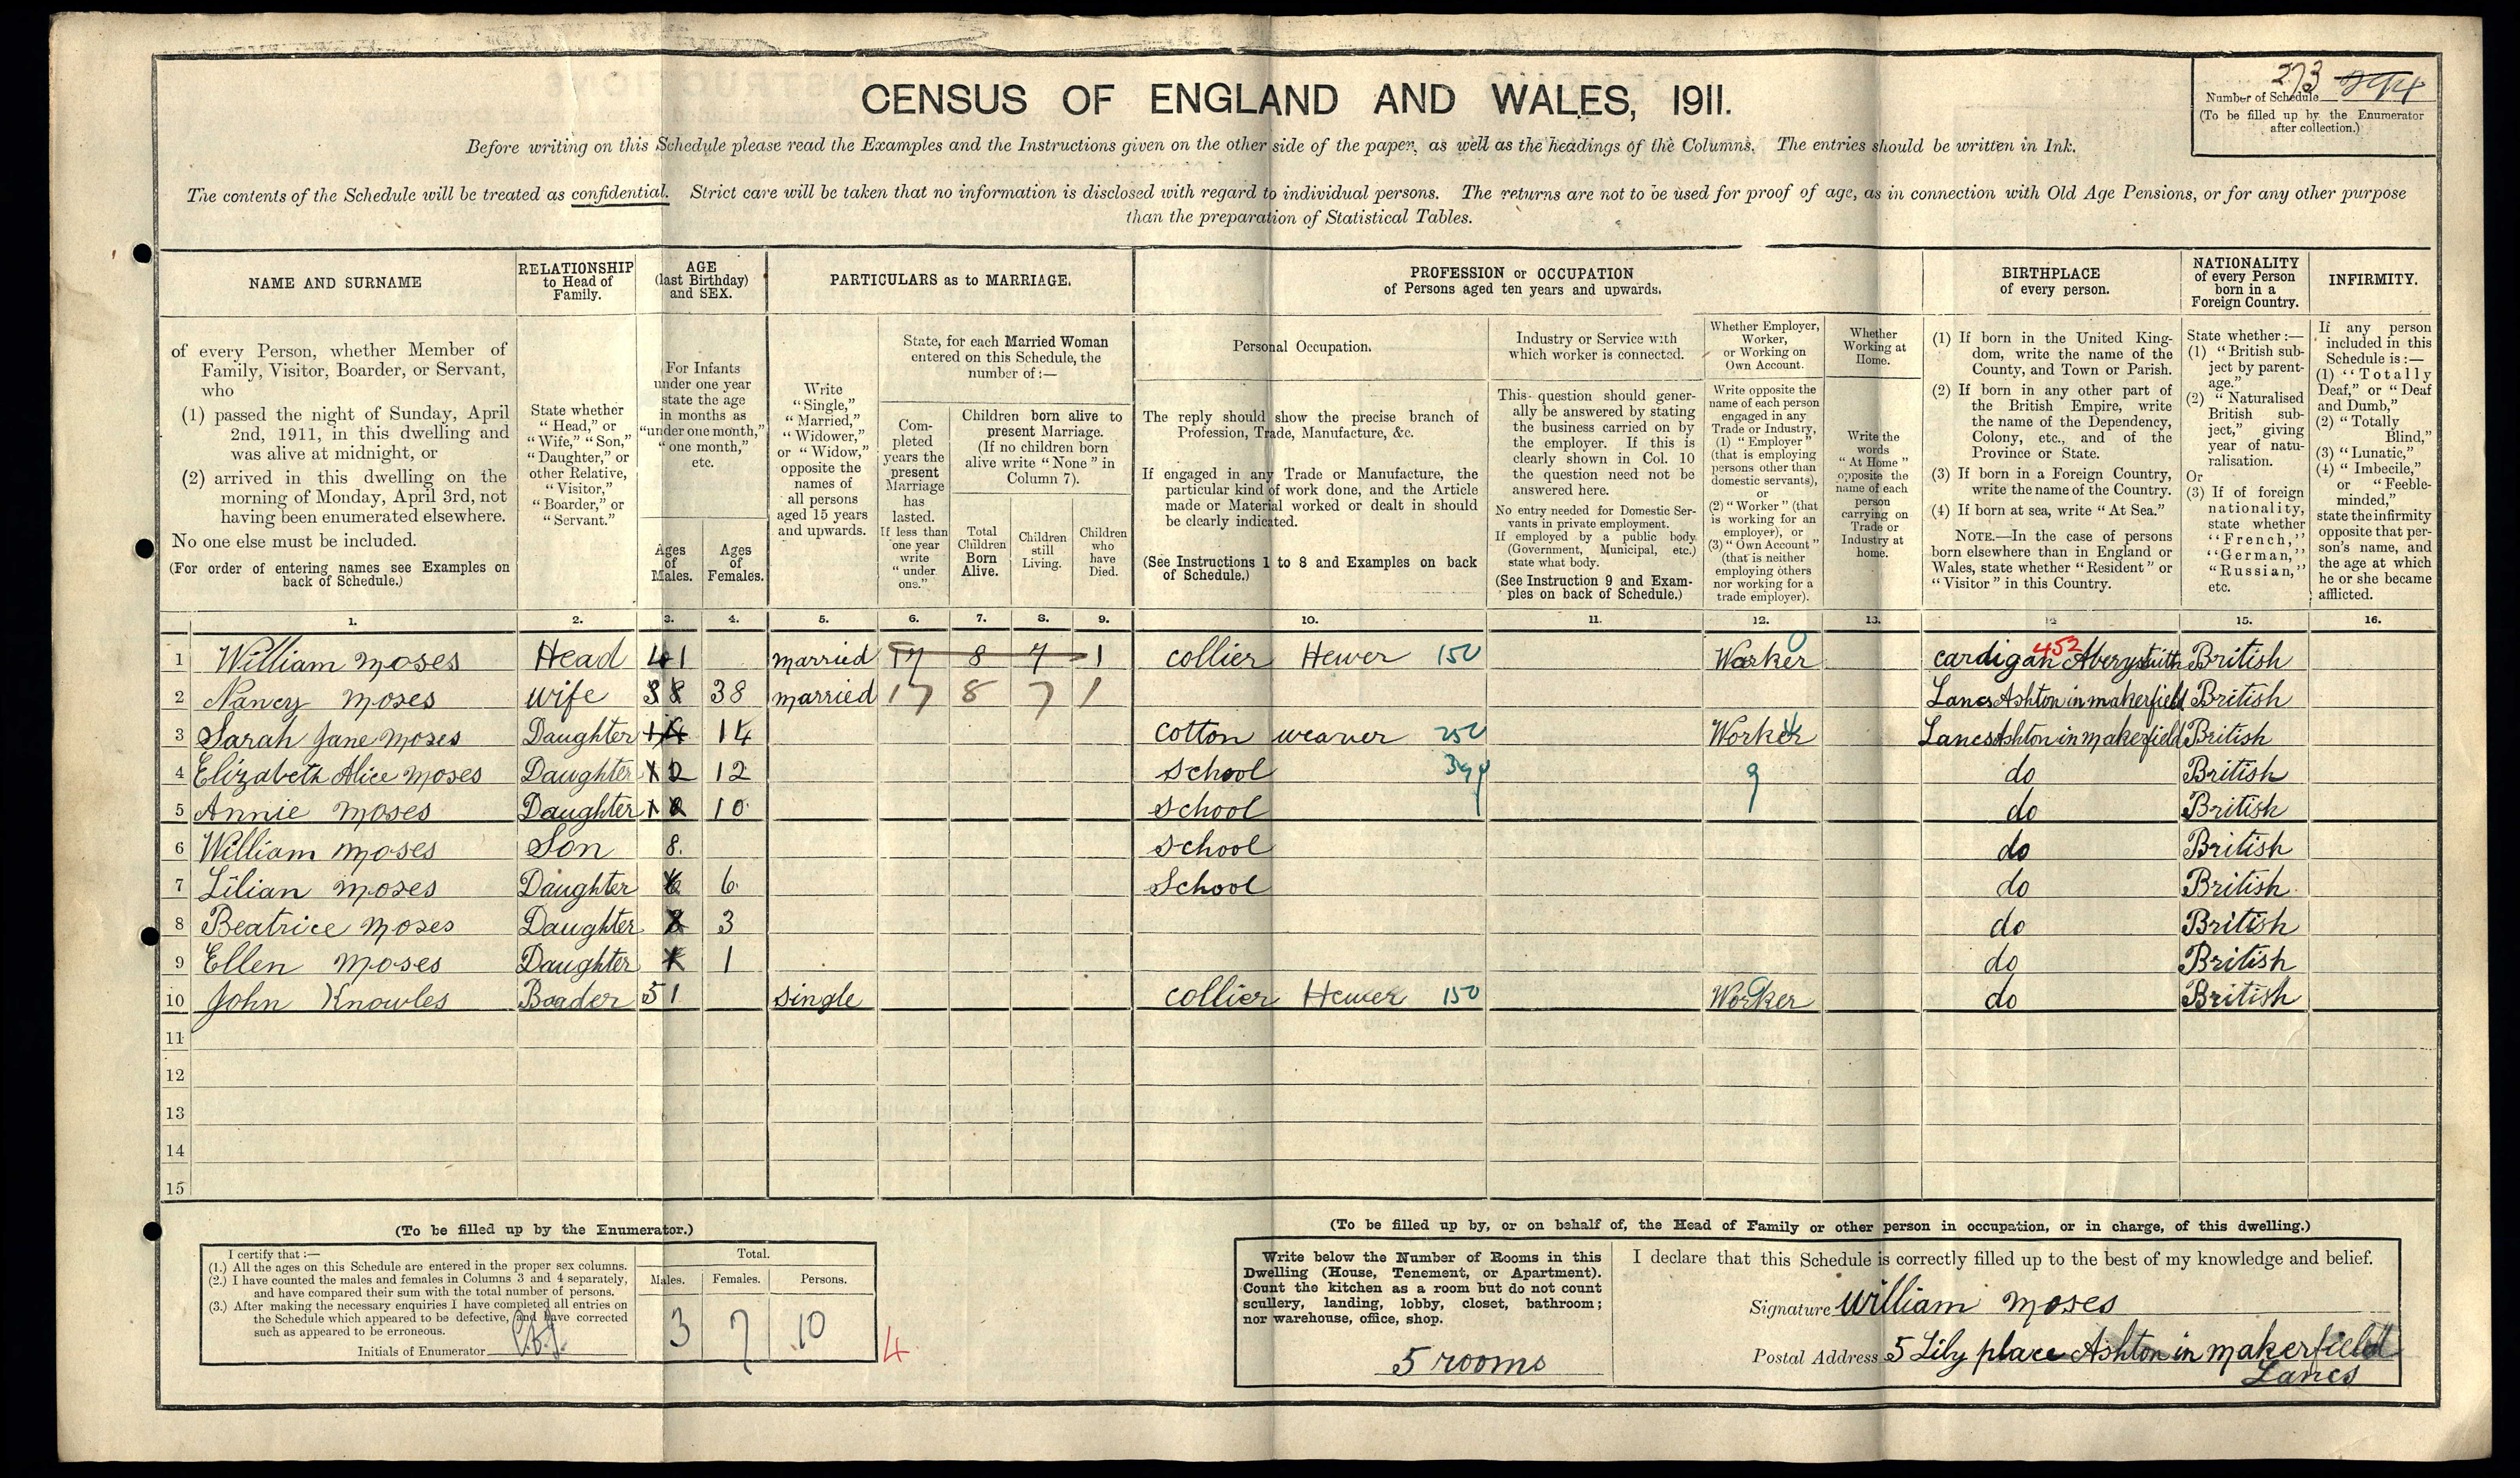 273 274
Number of Schedule
(To be filled up by the Enumerator
after collection.)
CENSUS OF ENGLAND AND WALES, 1911.
Before writing on this Schedule please read the Examples and the Instructions given on the other side of the paper, as well as the headings of the Columns. The entries should be written in Ink.
The contents of the Schedule will be treated as confidential. Strict care will be taken that no information is disclosed with regard to individual persons. The returns are not to be used for proof of age, as in connection with Old Age Pensions, or for any other purpose
than the preparation of Statistical Tables.
NAME AND SURNAME
of every Person, whether Member of
Family, Visitor, Boarder, or Servant,
who
(1) passed the night of Sunday, April
2nd, 1911, in this dwelling and
was alive at midnight, or
(2) arrived in this dwelling on the
morning of Monday, April 3rd, not
having been enumerated elsewhere.
No one else must be included.
(For order of entering names see Examples on
back of Schedule.)
RELATIONSHIP
to Head of
Family.
State whether
"Head," or
"Wife," "Son,"
"Daughter," or
other Relative,
"Visitor,"
"Boarder," or
"Servant."
AGE
(last Birthday)
and SEX.
For Infants
under one year
state the age
in months as
"under one month,"
"one month,"
etc.
Ages
of
Males.
Ages
of
Females.
PARTICULARS as to MARRIAGE.
Write
"Single,"
"Married,"
"Widower,"
or "Widow,"
opposite the
names of
all persons
aged 15 years
and upwards.
State, for each Married Woman
entered on this Schedule, the
number of:—
Com-
pleted
years the
present
Marriage
has
lasted.
If less than
one year
write
"under
one."
Children born alive to
present Marriage.
(If no children born
alive write "None" in
Column 7).
Total
Children
Born
Alive.
Children
still
Living.
Children
who
have
Died.
PROFESSION or OCCUPATION
of Persons aged ten years and upwards.
Personal Occupation.
The reply should show the precise branch of
Profession, Trade, Manufacture, &c.
If engaged in any Trade or Manufacture, the
particular kind of work done, and the Article
made or Material worked or dealt in should
be clearly indicated.
(See Instructions 1 to 8 and Examples on back
of Schedule.)
Industry or Service with
which worker is connected.
This question should gener-
ally be answered by stating
the business carried on by
the employer. If this is
clearly shown in Col. 10
the question need not be
answered here.
No entry needed for Domestic Ser-
vants in private employment.
If employed by a public body
(Government, Municipal, etc.)
state what body.
(See Instruction 9 and Exam-
ples on back of Schedule.)
Whether Employer,
Worker,
or Working on
Own Account.
Write opposite the
name of each person
engaged in any
Trade or Industry,
(1) "Employer"
(that is employing
persons other than
domestic servants),
or
(2) "Worker" (that
is working for an
employer), or
(3) "Own Account"
(that is neither
employing others
nor working for a
trade employer).
Whether
Working at
Home.
Write the
words
"At Home"
opposite the
name of each
person
carrying on
Trade or
Industry at
home.
BIRTHPLACE
of every person.
(1) If born in the United King-
dom, write the name of the
County, and Town or Parish.
(2) If born in any other part of
the British Empire, write
the name of the Dependency,
Colony, etc., and of the
Province or State.
(3) If born in a Foreign Country,
write the name of the Country.
(4) If born at sea, write "At Sea."
NOTE.—In the case of persons
born elsewhere than in England or
Wales, state whether "Resident" or
"Visitor" in this Country.
NATIONALITY
of every Person
born in a
Foreign Country.
State whether:—
(1) "British sub-
ject by parent-
age."
(2) "Naturalised
British sub-
ject," giving
year of natu-
ralisation.
Or
(3) If of foreign
nationality,
state whether
"French,"
"German,"
"Russian,"
etc.
INFIRMITY.
If any person
included in this
Schedule is:—
(1) "Totally
Deaf," or "Deaf
and Dumb,"
(2) "Totally
Blind,"
(3) "Lunatic,"
(4) "Imbecile,"
or "Feeble-
minded,"
state the infirmity
opposite that per-
son's name, and
the age at which
he or she became
afflicted.
1. 2. 3. 4. 5. 6. 7. 8. 9. 10. 11. 12. 13. 14 15. 16.
1 William Moses Head 41 married 17 8 7 1 collier Hewer 150 Worker 0 cardigan Aberystuith 453 British
2 Nancy Moses wife 38 38 married 17 8 7 1 Lancs Ashton in makerfield British
3 Sarah Jane Moses Daughter 14 14 cotton weaver 250 Worker 4 Lancs Ashton in makerfield British
4 Elizabeth Alice Moses Daughter 12 12 School 399 9 do British
5 Annie Moses Daughter 10 10 School do British
6 William Moses Son 8 School do British
7 Lilian Moses Daughter 6 6 School do British
8 Beatrice Moses Daughter 3 3 do British
9 Ellen Moses Daughter 1 1 do British
10 John Knowles Boader 51 single collier Hewer 150 Worker do British
11
12
13
14
15
(To be filled up by the Enumerator.)
I certify that:—
(1.) All the ages on this Schedule are entered in the proper sex columns.
(2.) I have counted the males and females in Columns 3 and 4 separately,
and have compared their sum with the total number of persons.
(3.) After making the necessary enquiries I have completed all entries on
the Schedule which appeared to be defective, and have corrected
such as appeared to be erroneous.
Initials of Enumerator
Total.
Males. Females. Persons.
3 7 10
4
(To be filled up by, or on behalf of, the Head of Family or other person in occupation, or in charge, of this dwelling.)
Write below the Number of Rooms in this
Dwelling (House, Tenement, or Apartment).
Count the kitchen as a room but do not count
scullery, landing, lobby, closet, bathroom;
nor warehouse, office, shop.
5 rooms
I declare that this Schedule is correctly filled up to the best of my knowledge and belief.
Signature William Moses
Postal Address 5 Lily place Ashton in makerfield
Lancs